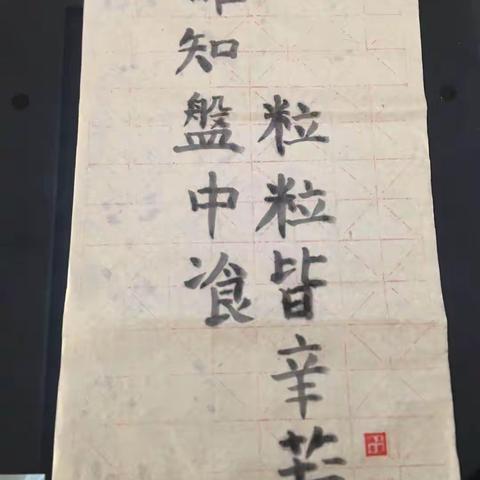 知盤中飡
粒粒皆辛苦